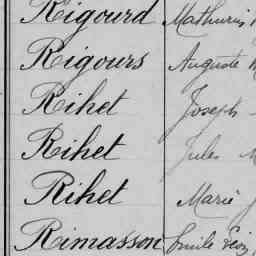 Rigourd Mathurin
Rigours Auguste
Rihet Joseph
Rihet Jules
Rihet Marie
Rimasson Emile